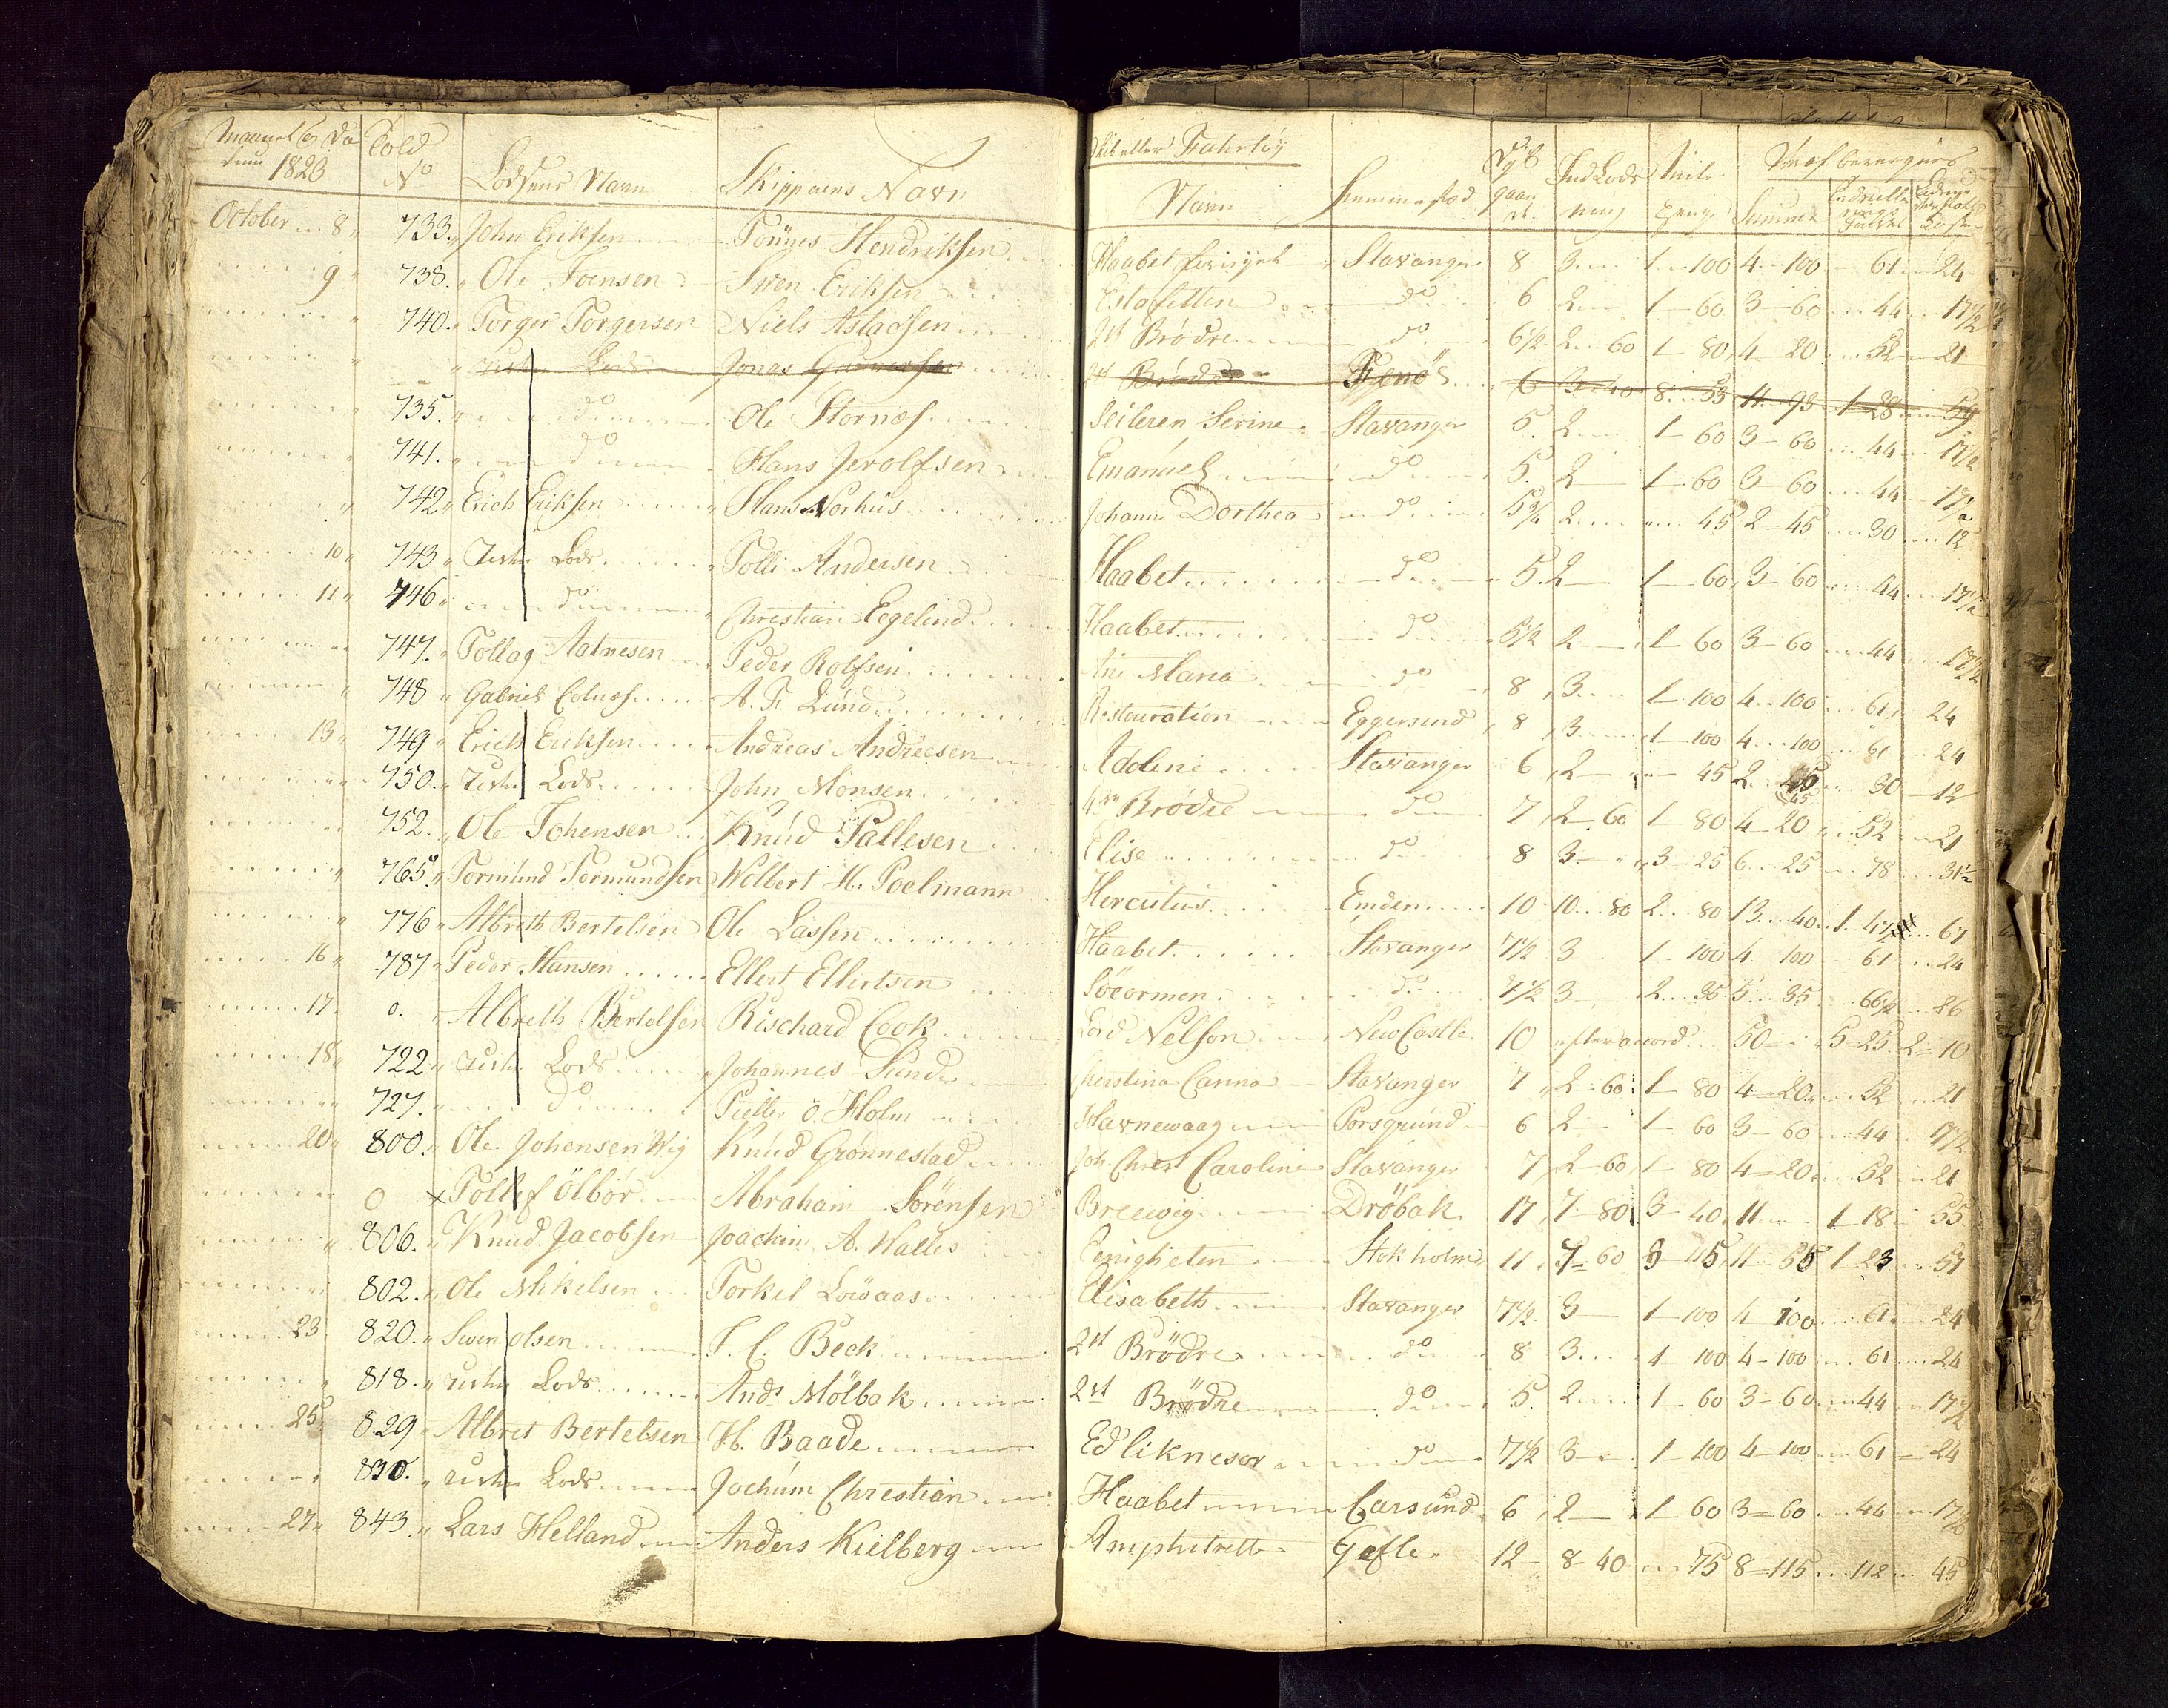 1823
Told No
Lodsens Navn
Skippaens Navn
October 8 733 John Eriksen Tönnes Hendriksen
9 738 Ole Swen Eriksen
740 Torger Torgersen Niels Astadsen
Lods Jonas
735 do Ole Stornæs
741 do Hans Jerolfsen
742 Erich Eriksen Hans Norhus
10 743 Lods Tolli Andersen
11 746 do Christian Eegelund
747 Tollag Aatnesen Peder Rolfsen
748 Gabriel A. F. Lund
13 749 Erich Eriksen Andreas Andreesen
750 Lods John Monsen
752 Ole Johensen Knud Pallesen
765 Tormund Tormundsen Wolbert H. Poelmann
776 Albreth Bertelsen Ole Lassen
16 787 Peder Hansen Ellert Ellertsen
17 0 Albreth Bertelsen Rischard Cook
18 722 Lods Johannes Sunde
727 do O. Holm
20 800 Ole Johensen Wig Knud Grönnestad
0 × Tollef Ölbör Abraham Sörensen
806 Knud Jacobsen Joachim A. Walles
802 Ole Mikelsen Torkel
23 820 Swen Olsen C. Beck
818 Lods Ands Mölbak
25 829 Albret Bertelsen H. Baade
830 Lods Jochum Christian
27 843 Lars Helland Anders Kielberg
Fahrtöy
Navn
Summa
Haabet Stavanger 8 3 1 100 4 100 61 24
Estafetten do 6 2 1 60 3 60 44 17 1/2
2st Brödre do 6 1/2 2 60 1 80 4 20 52 21
Brödre 6 8 53 11 93 1 28 59
Seileren Serine Stavanger 5 2 1 60 3 60 44 17 1/2
Emanuel do 5 2 1 60 3 60 44 17 1/2
Johanne Dorthea do 5 3/4 2 45 2 45 30 12
Haabet do 5 2 1 60 3 60 44 17 1/2
Haabet do 5 1/2 2 1 60 3 60 44 17 1/2
Ane Maria do 8 3 1 100 4 100 61 24
Restauration Eggersund 8 3 1 100 4 100 61 24
Adoline Stavanger 6 2 45 2 45 30 12
4re Brödre do 7 2 60 1 80 4 20 52 21
Elise do 8 3 3 25 6 25 78 31 1/2
Hercules Emden 10 10 80 2 80 13 40 1 47 67
Haabet Stavanger 7 1/2 3 1 100 4 100 61 24
Söeormen do 7 1/2 3 2 35 5 35 66 1/2 26
Lord Nelson New Castle 10 efter accord 50 5 25 2 10
Cherstina Carina Stavanger 7 2 60 1 80 4 20 52 21
Havnewaag Porsgrund 6 2 1 60 3 60 44 17 1/2
Joh. Chrest Caroline Stavanger 7 2 60 1 80 4 20 52 21
Breewig Dröbak 17 7 80 3 40 11 1 18 55
Eenigheten Stokholm 11 7 60 3 45 11 55 1 23 57
Elisabeth Stavanger 7 1/2 3 1 100 4 100 61 24
2st Brödre do 8 3 1 100 4 100 61 24
2st Brödre do 5 2 1 60 3 60 44 17 1/2
Edliknesor do 7 1/2 3 1 100 4 100 61 24
Haabet Carsund 6 2 1 60 3 60 44 17 1/2
Amphitrette Gefle 12 8 40 75 8 115 112 45